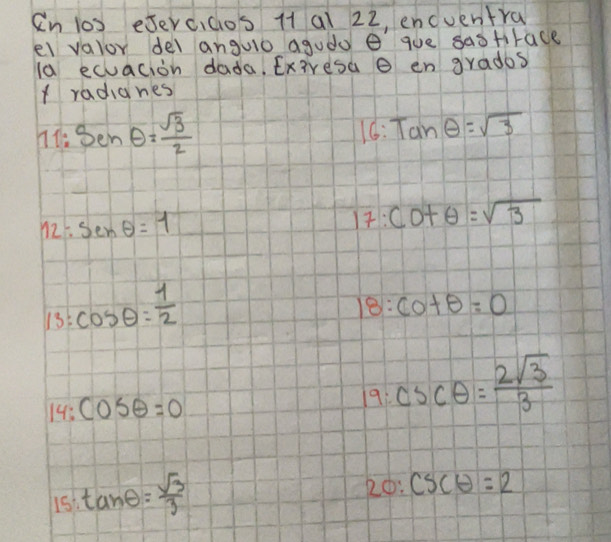 En los ejercicios 11 al 22, encuentra
el valor del angulo agudo θ que sastiface
la ecuación dada. Expresa θ en grados
y radianes
11: Sen θ = √3/2
16: Tan θ = √3
12: Sen θ = 1
17: Cot θ = √3
13: cos θ = 1/2
18: cot θ = 0
14: COS θ = 0
19: CSC θ = 2√3/3
15: tan θ = √3/3
20: CSC θ = 2